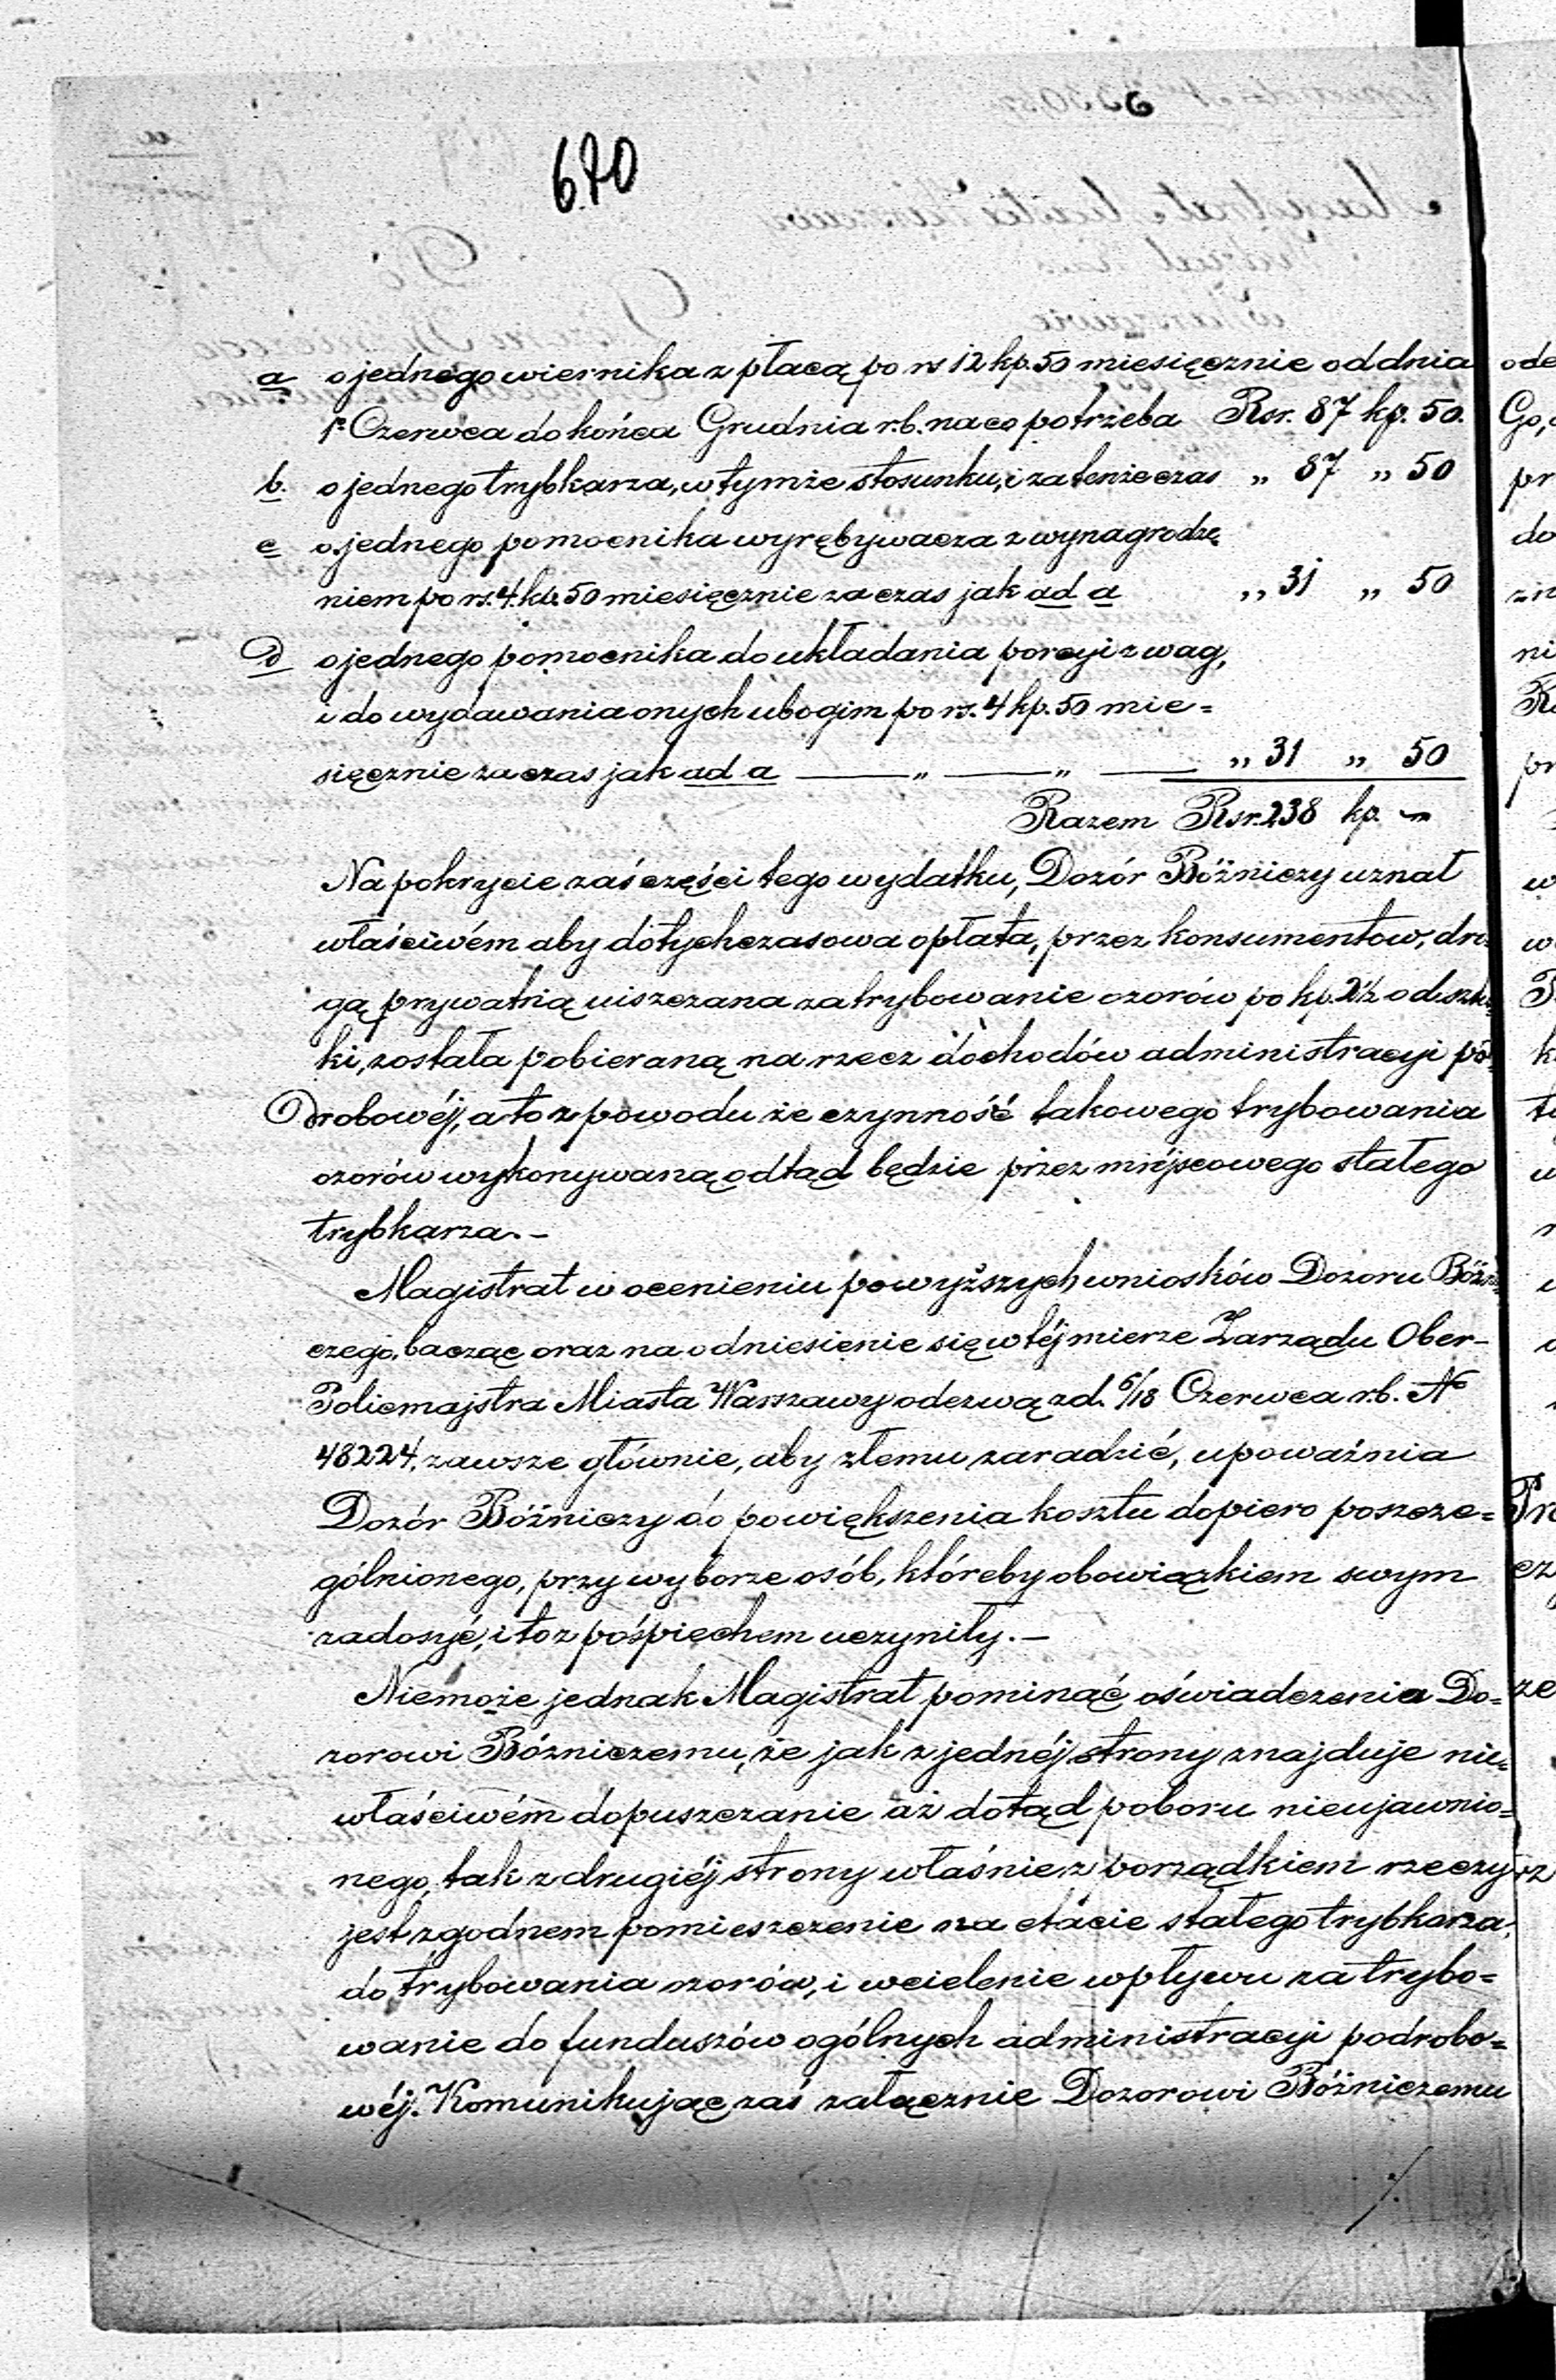 6
670
a o jednego wiernika z płacą po rs 12 kp. 50 miesięcznie od dnia
1º Czerwca do końca Grudnia r.b. na co potrzeba Rsr. 87 kp. 50.
b. o jednego trybkarza, w tymże stosunku, i za tenże czas „ 87 „ 50
c o jednego pomocnika wyrębywacza z wynagrodze
niem po rs. 4. kp. 50 miesięcznie za czas jak ad a „ 31 „ 50
D o jednego pomocnika do układania porcyi z wag,
i do wydawania onych ubogim po rs. 4 kp. 50 mie=
sięcznie za czas jak ad a — „ — „ — „ 31 „ 50
Razem Rsr. 238 kp. —
Na pokrycie zaś części tego wydatku, Dozór Bóżniczy uznał
właściwém aby dotychczasowa opłata, przez konsumentow, dro
gą prywatną uiszczana za trybowanie ozorów po kp. 2½ od sztu
ki, została pobieraną na rzecz dochodów administracyi po
Drobowéj, a to z powodu że czynność takowego trybowania
ozorów wykonywaną odtąd będzie przez miejscowego stałego
trybkarza. —
Magistrat w ocenieniu powyższych wniosków Dozoru Bóżni
czego, bacząc oraz na odniesienie się w téj mierze Zarządu Ober-
Policmajstra Miasta Warszawy odezwą z d. 6/18 Czerwca r.b. N
48224. zawsze głównie, aby złemu zaradzić, upoważnia
Dozór Bóżniczy do powiększenia kosztu dopiero poszcze=
gólnionego, przy wyborze osób, któreby obowiązkiem swym
zadosyć, i to z pośpiechem uczyniły. —
Niemoże jednak Magistrat pominąć oświadczenia Do=
zorowi Bóżniczemu, że jak z jednéj strony znajduje nie=
właściwém dopuszczanie aż dotąd poboru nieujawnio=
nego, tak z drugiéj strony właśnie z porządkiem rzeczy
jest zgodnem pomieszczenie na etacie stałego trybkarza,
do trybowania ozorów, i wcielenie wpływu za trybo=
wanie do funduszów ogólnych administracyi podrobo=
wéj. Komunikując zaś załącznie Dozorowi Bóżniczemu